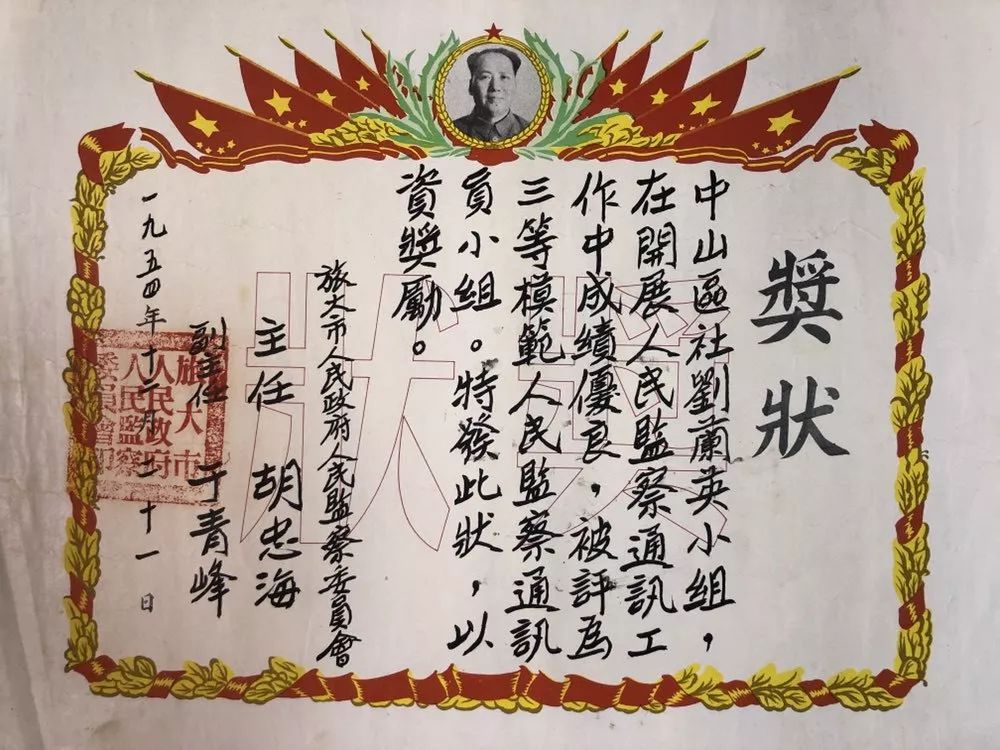 獎狀
中山區社劉蘭英小組，
在開展人民監察通訊工
作中成績優良，被評為
三等模範人民監察通訊
員小組。特發此狀，以
資獎勵。
旅大市人民政府人民監察委員會
主任 胡忠海
副主任 于青峰
一九五四年十二月二十一日
獎狀
旅大市
人民政府
人民監察
委員會印